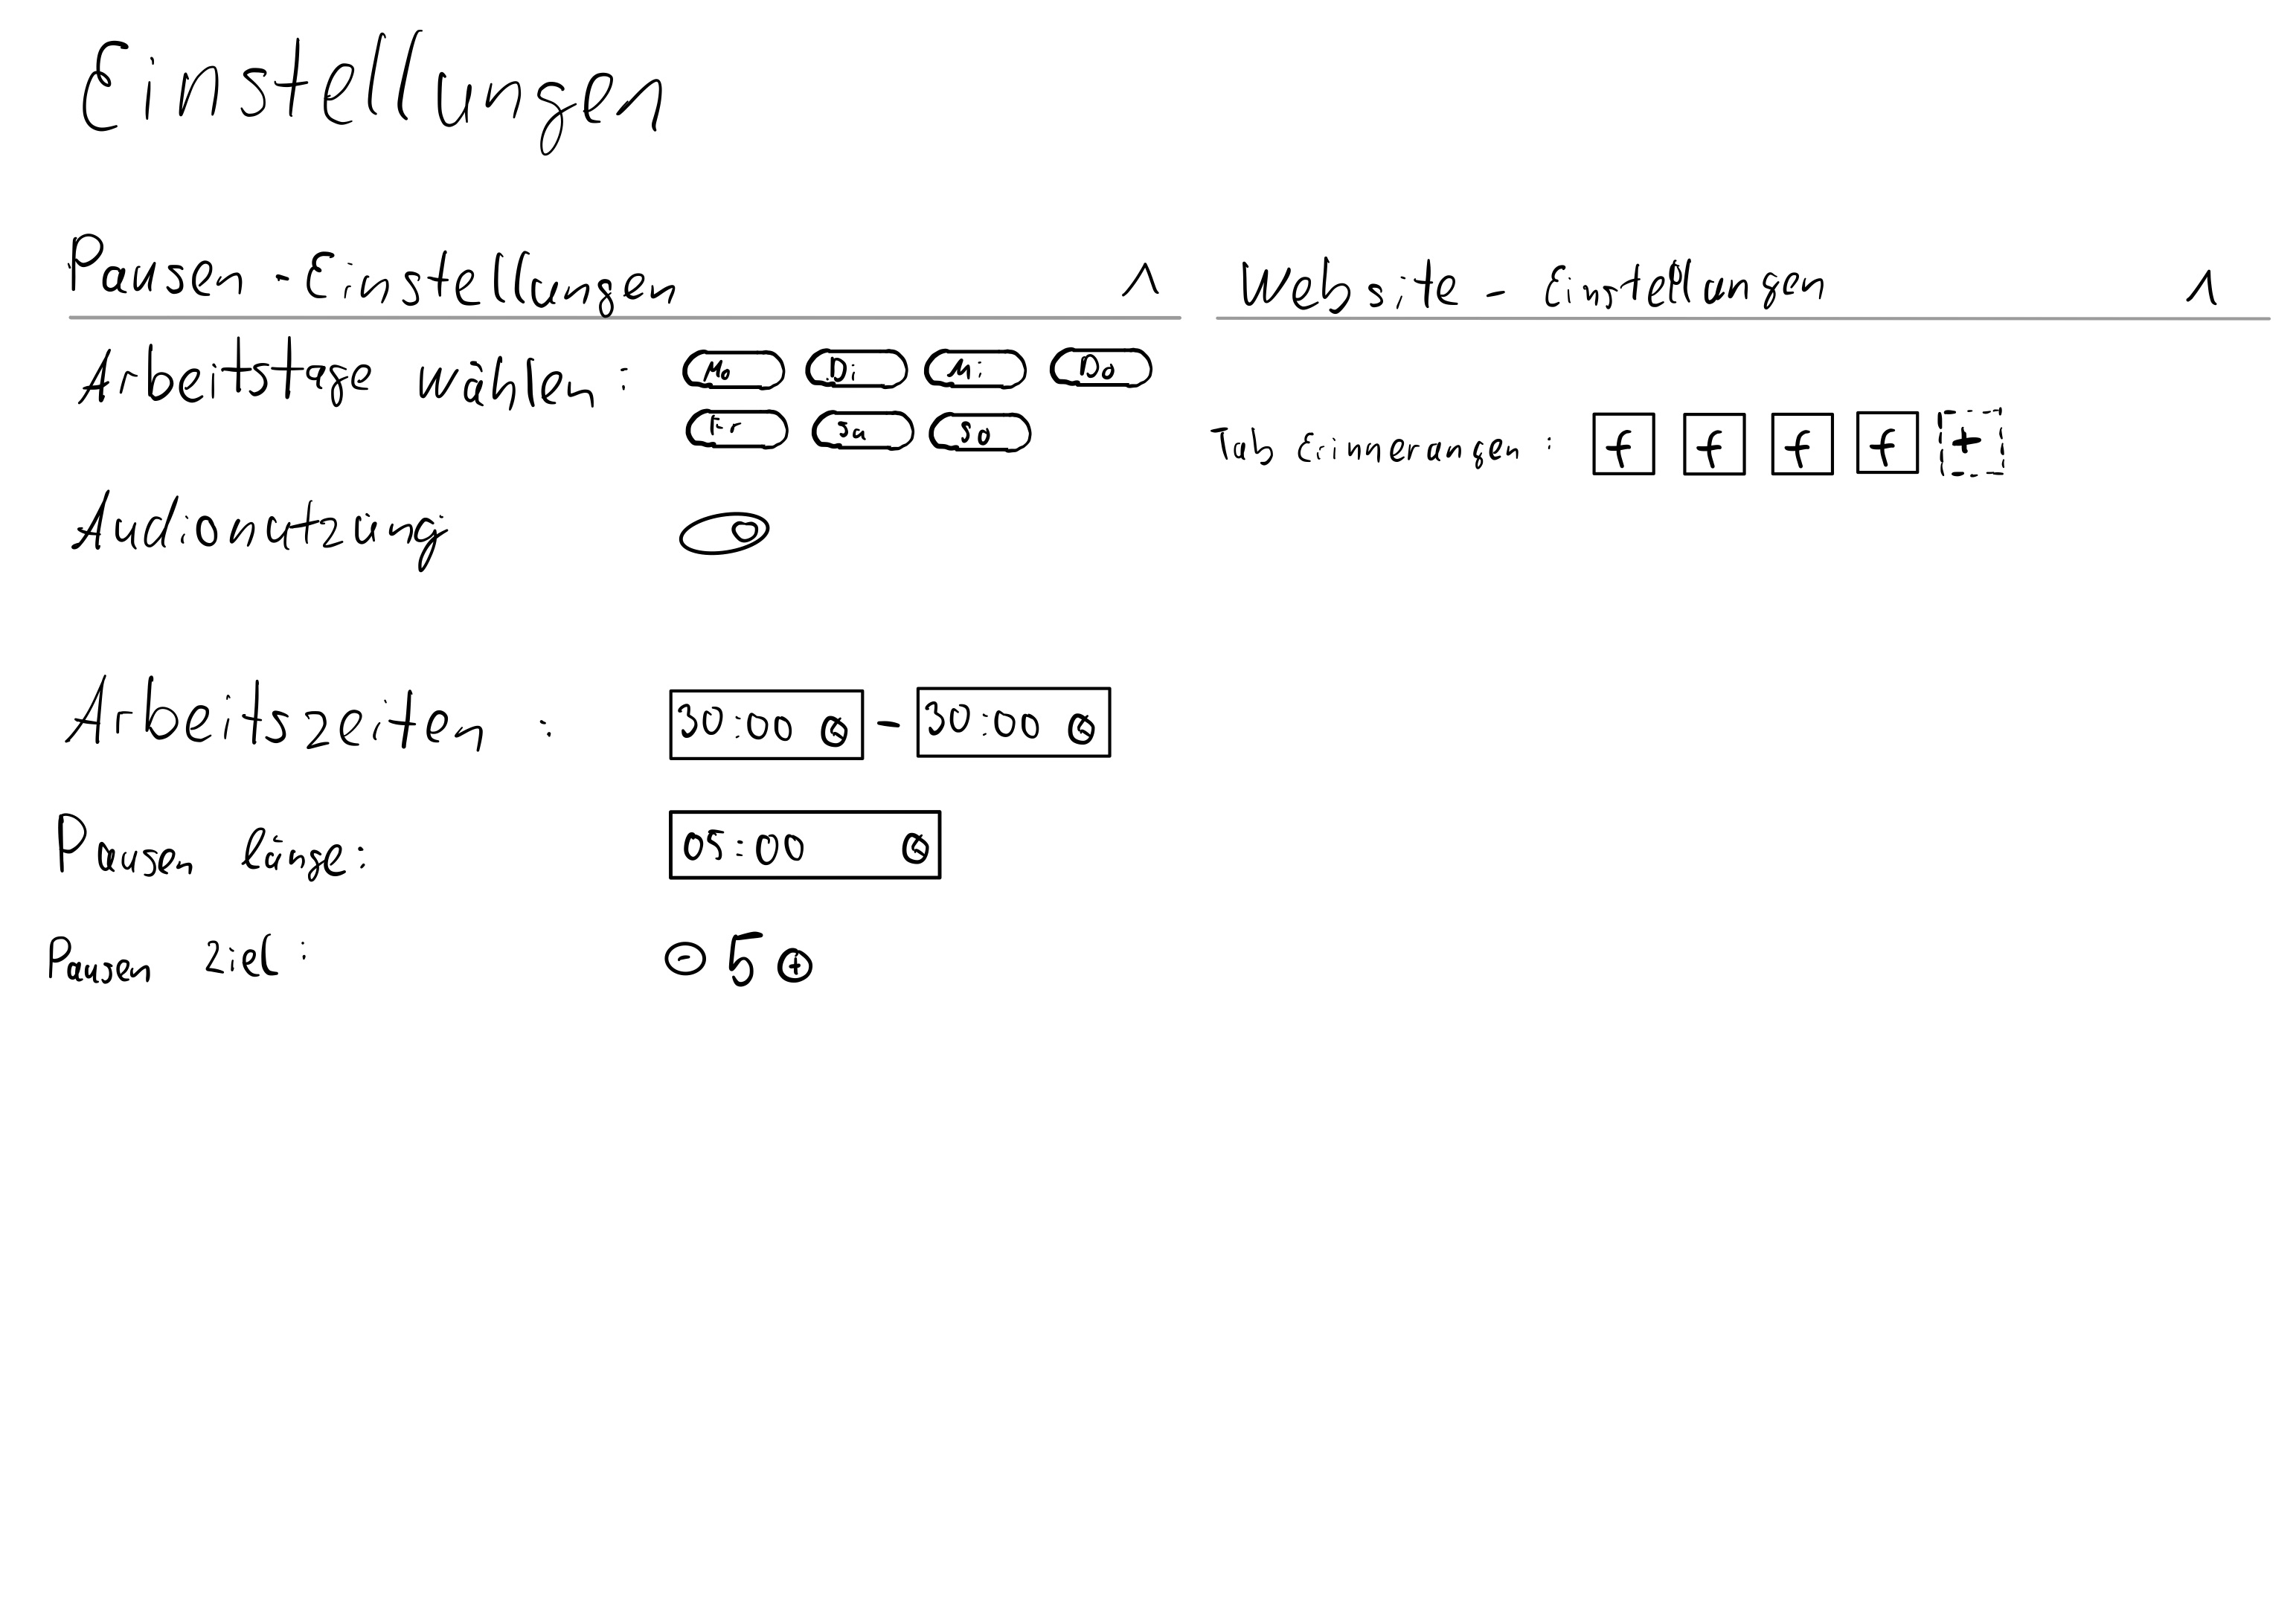 Einstellungen
Pausen - Einstellungen ^
Arbeitstage wählen: Mo Di Mi Do
Fr Sa So
Audionutzung
Arbeitszeiten : 30:00 - 30:00
Pausen länge: 05:00
Pausen Ziel: - 5 +
Website - Einstellungen ^
Tab Erinnerungen: f f f f +